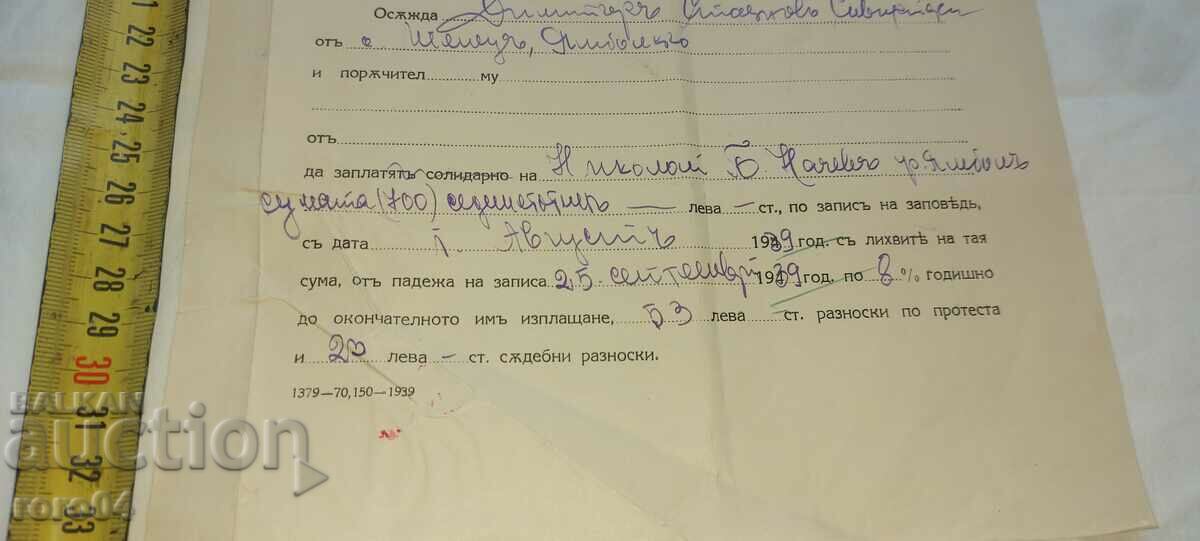 Осѫжда Димитъръ
отъ с.
и порѫчител му
отъ
да заплатятъ солидарно на Николай Б. Начевъ гр. Ямболъ
сумата (700) седемстотинъ — лева — ст., по записъ на заповѣдь,
съ дата 1. Августъ 1939 год. съ лихвитѣ на тая
сума, отъ падежа на записа 25. септемврий 1939 год. по 8 % годишно
до окончателното имъ изплащане, 53 лева ст. разноски по протеста
и 20 лева — ст. сѫдебни разноски.
1379—70,150—1939
21 22 23 24 25 26 27 28 29 30 31 32 33
BALKAN
auction
roro04